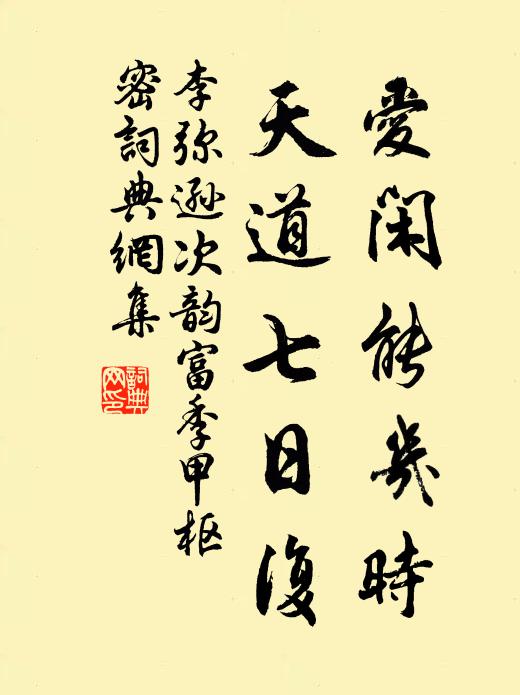 愛閑能幾時
天道七日復
李弥遜次韵富季甲枢
密詞典網集
詞典網印